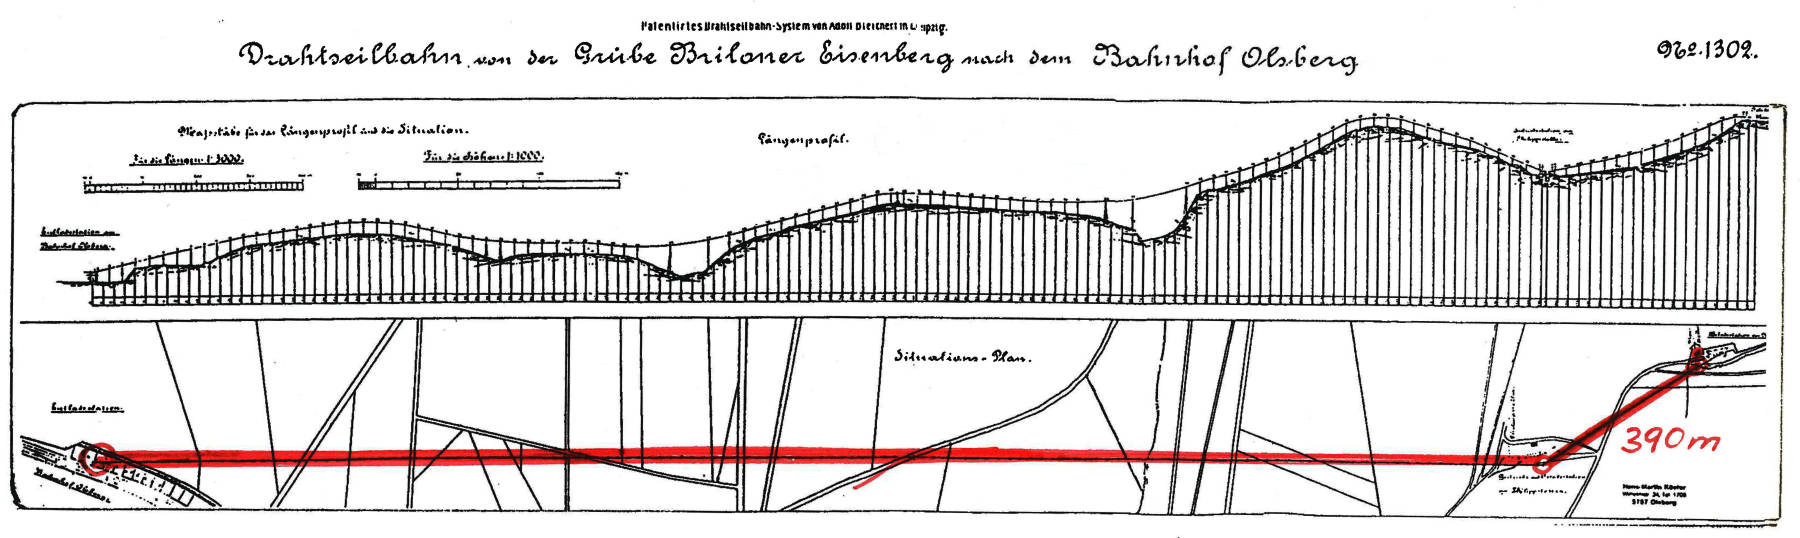 Patentirtes Drahtseilbahn-System von Adolf Bleichert in Leipzig.
Drahtseilbahn von der Grube Briloner Eisenberg nach dem Bahnhof Olsberg
No. 1302.
Massstäbe für das Längenprofil und die Situation.
Für die Längen 1:3000.
Für die Höhen 1:1000.
Längenprofil.
Entladestation am
Bahnhof Olsberg.
Situations-Plan.
Entladestation.
Bahnhof Olsberg.
390m
Hans-Martin Köster
5787 Olsberg